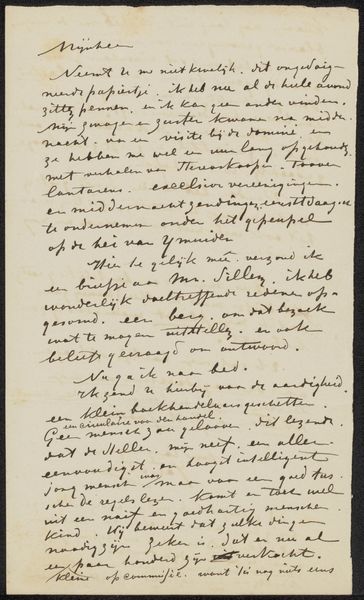 Mijnheer
Neemt U me niet kwalijk. dit
papiertje. ik heb nu al de hele avond
zitten pennen, en ik kan geen ander vinden.
Mijn zwager en zuster kwamen na midder
nacht. van een visite bij de dominé, en
ze hebben me wel een uur lang opgehouden
met verhalen van Stereoskopen. Toover
lantarens. vereenigingen.
en middernachtzendingen,
te ondernemen onder het gepeupel
op de hei van Ymuiden
Hier te gelijk mêe. verzond ik
een briefje aan Mr. Sillem. ik heb
wonderlijk doeltreffende redenen op-
gesomd. een berg. om dat bezoek
wat te mogen uitstellen. en ook
beleefd gevraagd om antwoord.
Nu ga ik naar bed.
Ik zend U hierbij voor de aardigheid.
een klein boekhandelaars
en circulaire van den handel.
Geen mensch zou gelooven. dit lezende.
dat de Heller. mijn neef. een aller
eenvoudigst. en hoogst intelligent
jong mensch was. Maar van een goed tus
sche de regels lezer. komt er toch wel
uit een naif en goedhartig menschen
kind. Hij beweert dat zulke dingen
noodig zijn. zeker is. dat er nu al
een paar honderd zijn verkocht.
kleine op commissie. want 't is nog niets eens